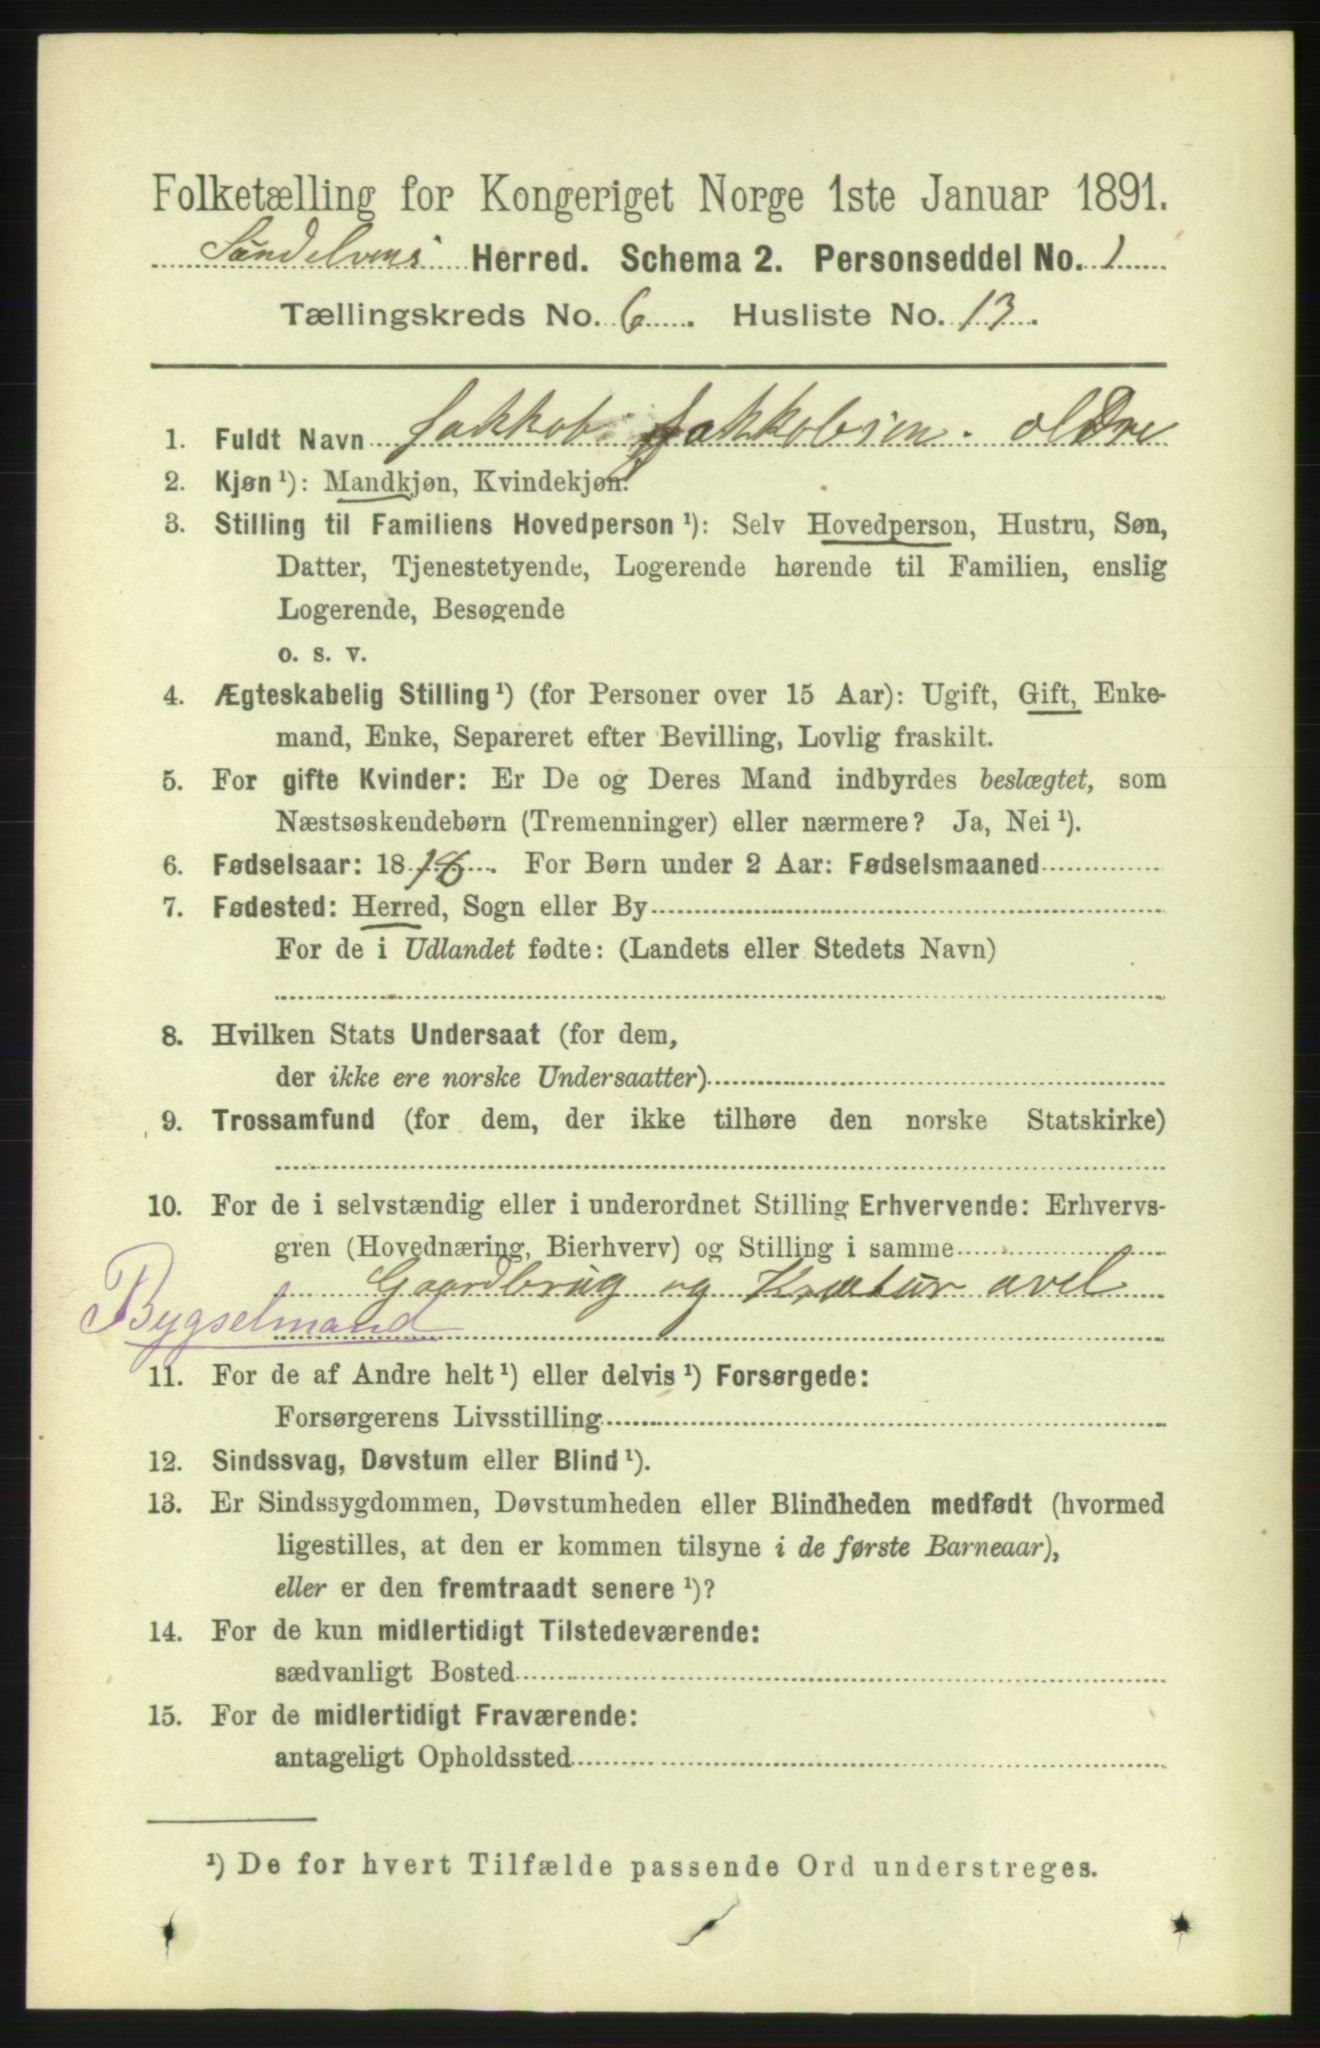 Folketælling for Kongeriget Norge 1ste Januar 1891.
Sundelvens Herred. Schema 2. Personseddel No. 1
Tællingskreds No. 6. Husliste No. 13.
1. Fuldt Navn Jakkob Jakkobsen. oldre
2. Kjøn ¹): Mandkjøn, Kvindekjøn.
3. Stilling til Familiens Hovedperson ¹): Selv Hovedperson, Hustru, Søn,
Datter, Tjenestetyende, Logerende hørende til Familien, enslig
Logerende, Besøgende
o. s. v.
4. Ægteskabelig Stilling ¹) (for Personer over 15 Aar): Ugift, Gift, Enke-
mand, Enke, Separeret efter Bevilling, Lovlig fraskilt.
5. For gifte Kvinder: Er De og Deres Mand indbyrdes beslægtet, som
Næstsøskendebørn (Tremenninger) eller nærmere? Ja, Nei ¹).
6. Fødselsaar: 1818. For Børn under 2 Aar: Fødselsmaaned
7. Fødested: Herred, Sogn eller By
For de i Udlandet fødte: (Landets eller Stedets Navn)
8. Hvilken Stats Undersaat (for dem,
der ikke ere norske Undersaatter)
9. Trossamfund (for dem, der ikke tilhøre den norske Statskirke)
10. For de i selvstændig eller i underordnet Stilling Erhvervende: Erhvervs-
gren (Hovednæring, Bierhverv) og Stilling i samme
Gaardbrug og Kreatur avel
Bygselmand
11. For de af Andre helt ¹) eller delvis ¹) Forsørgede:
Forsørgerens Livsstilling
12. Sindssvag, Døvstum eller Blind ¹).
13. Er Sindssygdommen, Døvstumheden eller Blindheden medfødt (hvormed
ligestilles, at den er kommen tilsyne i de første Barneaar),
eller er den fremtraadt senere ¹)?
14. For de kun midlertidigt Tilstedeværende:
sædvanligt Bosted
15. For de midlertidigt Fraværende:
antageligt Opholdssted
¹) De for hvert Tilfælde passende Ord understreges.